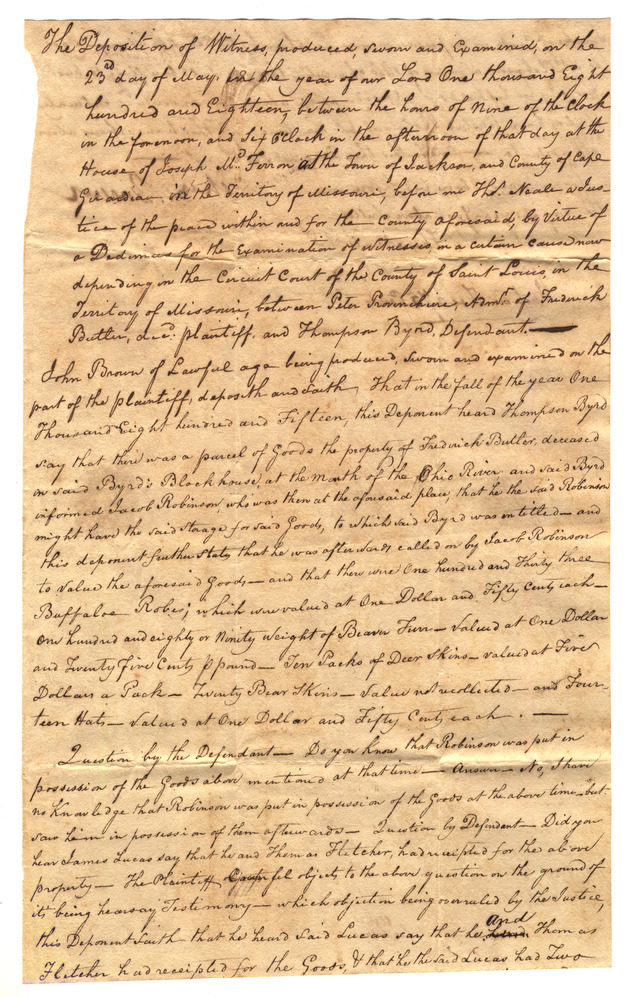 The Deposition of Witness, produced, sworn and Examined, on the
23rd day of May. in the year of our Lord One thousand Eight
hundred and Eighteen, between the hours of Nine of the Clock
in the forenoon, and Six OClock in the afternoon of that day at the
House of Joseph Mc. Ferron at the Town of Jackson, and County of Cape
Girardeau in the Territory of Missouri, before me Thos. Neale a Jus-
tice of the peace within and for the County aforesaid, by Virtue of
a Dedimus for the Examination of witnesses, in a certain cause now
depending in the Circuit Court of the County of Saint Louis, in the
Territory of Missouri, between Peter Provenchire, Admr. of Frederick
Butler, decd. plaintiff. and Thompson Byrd, Defendant.—
John Brown of Lawful age being produced, sworn and examined on the
part of the plaintiff, deposeth and saith, That in the fall of the year One
Thousand Eight hundred and Fifteen, this Deponent heard Thompson Byrd
say that there was a parcel of Goods the property of Frederick Butler, deceased
in said Byrd's Blockhouse, at the Mouth of the Ohio River. and said Byrd
informed Jacob Robinson, who was then at the aforesaid place, that he the said Robinson
might have the said storage for said Goods, to which said Byrd was entitled — and
this deponent further states that he was afterwards called on by Jacob Robinson
to value the aforesaid Goods — and that there were One hundred and Thirty three
Buffaloe Robes, which were valued at One Dollar and Fifty Cents each —
One hundred and eighty or Ninity weight of Beaver Furr — Valued at One Dollar
and Twenty Five Cents p pound — Ten Packs of Deer Skins — valued at Five
Dollars a Pack — Twenty Bear Skins — Value not recollected — and Four-
teen Hats — Valued at One Dollar and Fifty Cents each. —
Question by the Defendant — Do you know that Robinson was put in
possession of the Goods above mentioned at that time — Answer — No, I have
no knowledge that Robinson was put in possession of the Goods at the above time — but
saw him in possession of them afterwards — Question by Defendant — Did you
hear James Lucas say that he and Thomas Fletcher, had receipted for the above
property — The Plaintiff objects to the above question on the ground of
its being hearsay Testimony — which objection being overruled by the Justice,
this Deponent Saith — that he heard said Lucas say that he and Thomas
Fletcher had receipted for the Goods, & that he the said Lucas had Two